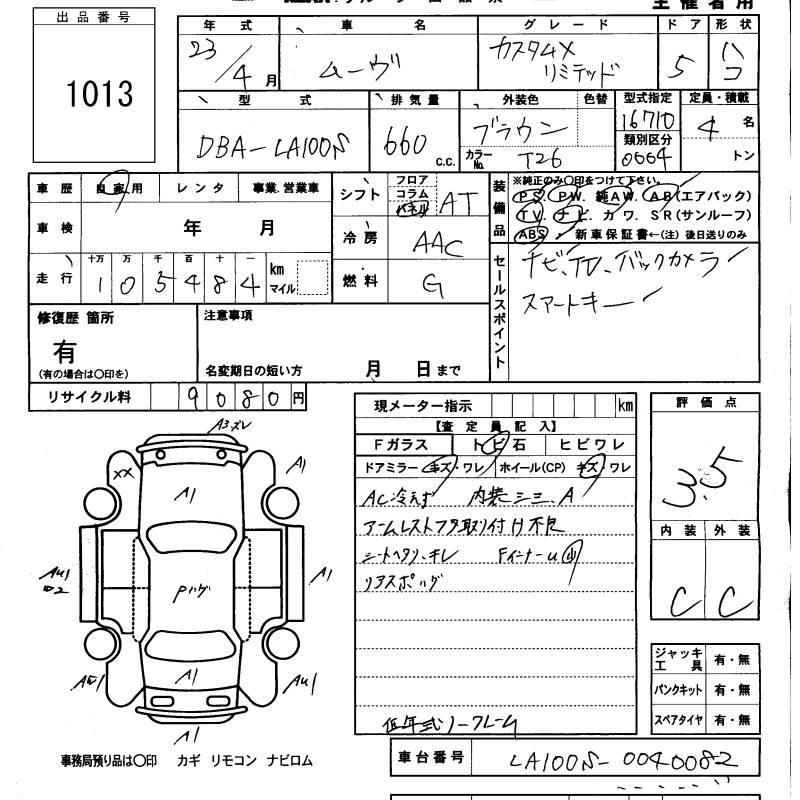 主催者用
出品番号
1013
年式 車名 グレード ドア 形状
23/4月 ムーヴ カスタムX リミテッド 5 ハコ
型式 排気量 外装色 色替 型式指定 定員・積載
DBA-LA100S 660 c.c. ブラウン 16710 4名
カラーNo. T26 類別区分 0004 トン
車歴 自家用 レンタ 事業.営業車
シフト フロア コラム パネル AT
装備品 ※純正のみ〇印をつけて下さい。
PS. PW. 純AW. AB(エアバック)
TV. ナビ. カワ. SR(サンルーフ)
ABS 新車保証書←(注) 後日送りのみ
車検 年 月
冷房 AAC
走行 十万 万 千 百 十 一
105484 km マイル
燃料 G
セールスポイント ナビ、TV、バックカメラ
スマートキー
修復歴 箇所
有
(有の場合は〇印を)
注意事項
名変期日の短い方 月 日まで
リサイクル料 9080円
現メーター指示 km
【査定員記入】
Fガラス トビ石 ヒビワレ
ドアミラー キズ・ワレ ホイール(CP) キズ ワレ
AC冷えず 内装シミ.A
アームレストフタ取り付け不良
シートヘタリ、キレ FインナーU小
リアスポハゲ
低年式ノークレーム
評価点
3.5
内装 外装
C C
ジャッキ工具 有・無
パンクキット 有・無
スペアタイヤ 有・無
A3ズレ
XX
A1
A1
AU1
A1
Pハゲ
A1
AW1
AU1
A1
事務局預り品は〇印 カギ リモコン ナビロム
車台番号 LA100S-0040082